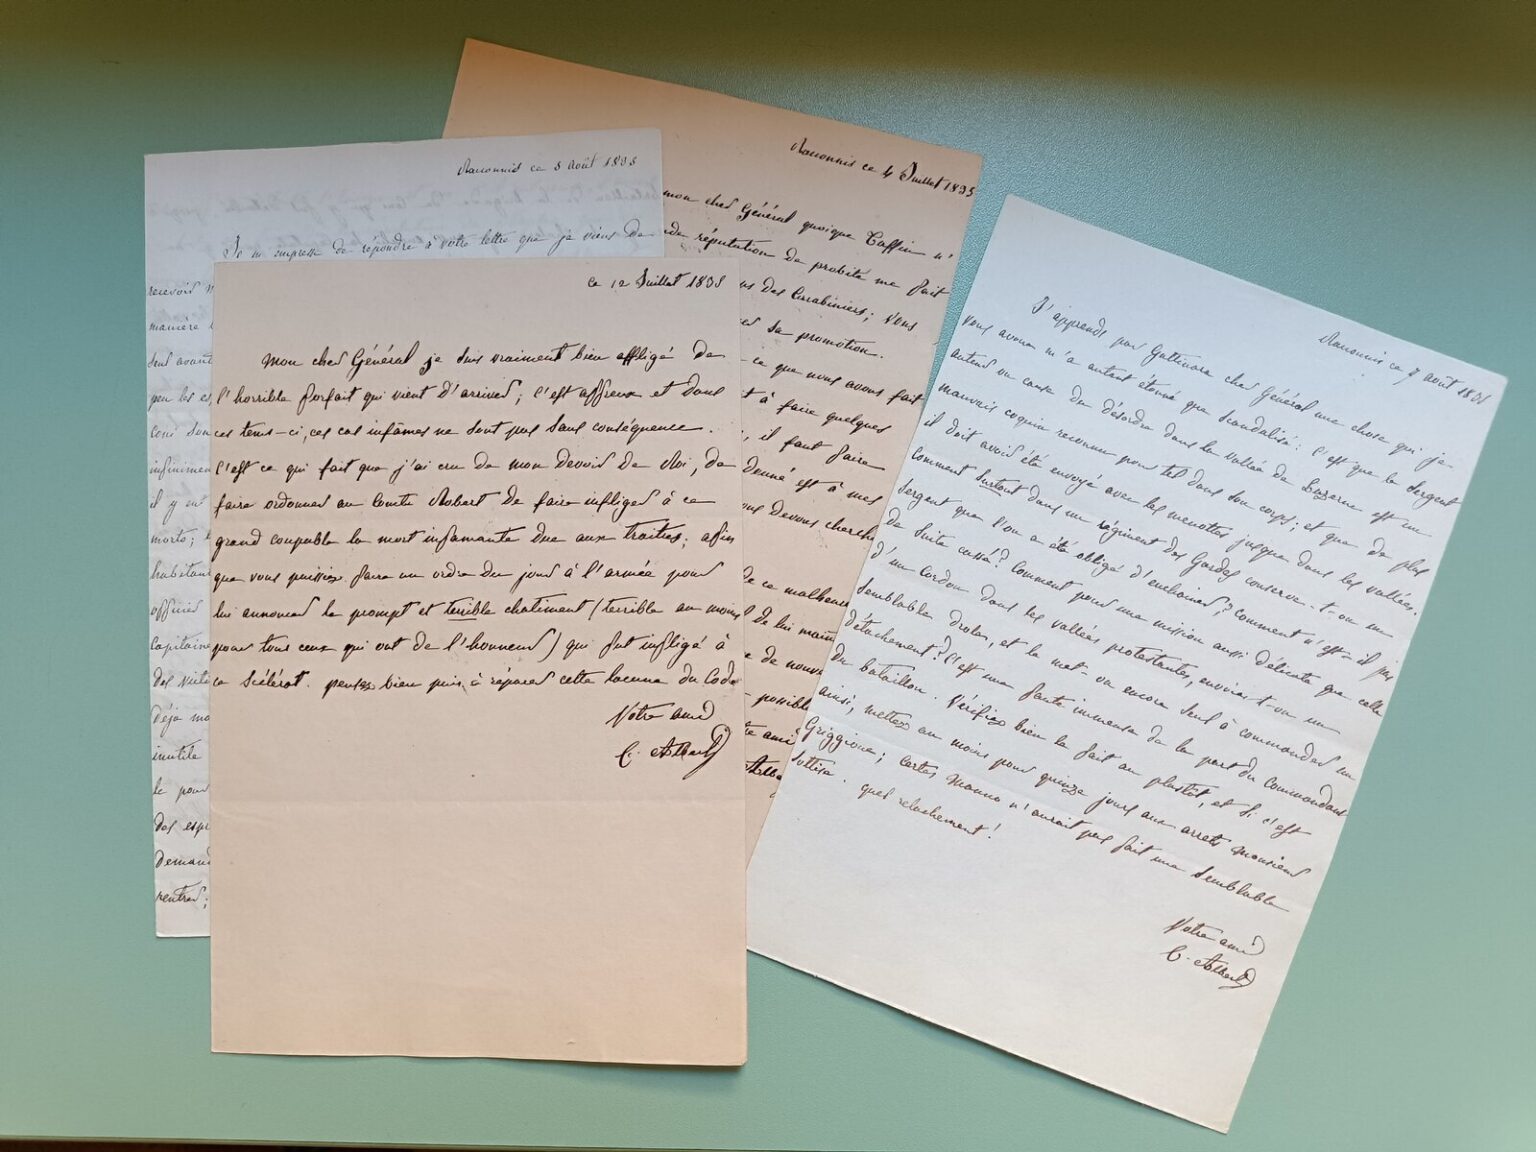 Racconnis ce 3 Août 1835
Je m'empresse de répondre à votre lettre que je viens de
recevoir
manière
seul avant
peu les es
infiniment
il y
morte;
habitant
officier
Capitaine
des victi
déjà
inutile
le pour
des esp
demand
rentrer;
Racconnis ce 4 Juillet 1835
mon cher Général quoique Taffin n'
réputation de probité me fait
des Carabiniers; vous
sa promotion.
ce que nous avons fait
à faire quelques
il faut faire
donné est à mes
devons cherch
de ce malheur
de lui
de nouv
possible
ami
ce 12 Juillet 1835
Mon cher Général je suis vraiment bien affligé de
l'horrible forfait qui vient d'arriver; c'est affreux et dans
ces tems-ci, ces cas infâmes ne sont pas sans conséquence.
c'est ce qui fait que j'ai cru de mon Devoir de Roi, de
faire ordonner au Comte Robert de faire infliger à ce
grand coupable la mort infamante due aux traitres; afin
que vous puissiez faire un ordre du jour à l'armée pour
lui annoncer le prompt et terrible chatiment (terrible au moins
pour tous ceux qui ont de l'honneur) qui fut infligé à
ce Scélérat. pensez bien puis à réparer cette lacune du Code
Votre ami
C. Albert
Racconnis ce 7 août 1835
J'apprends par Gattinara cher Général une chose qui je
vous avoue m'a autant étonné que scandalisé: c'est que le Sergent
auteur ou cause du désordre dans la vallée de Luzerne est un
mauvais coquin reconnu pour tel dans son corps; et que de plus
il doit avoir été envoyé avec les menottes jusque dans les vallées.
Comment surtout dans un régiment des Gardes conserve-t-on un
Sergent que l'on a été obligé d'enchainer? Comment n'est-il pas
de suite cassé? Comment pour une mission aussi délicate que celle
d'un cordon dans les vallées protestantes, envoie-t-on un
semblable drole, et le met-on encore seul à commander un
détachement? C'est une faute immense de la part du commandant
du bataillon. Vérifiez bien le fait au plustôt, et si c'est
ainsi, mettez au moins pour quinze jours aux arrets monsieur
Griggione; certes Manno n'aurait pas fait une semblable
sottise. quel relachement!
Votre ami
C. Albert